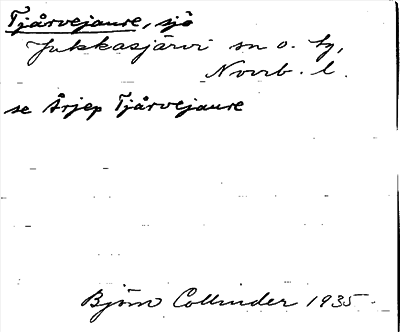 Tjårvejaure, sjö
Jukkasjärvi sn o. tg,
Norrb. l.
se Årjep Tjårvejaure
Björn Collinder 1935.